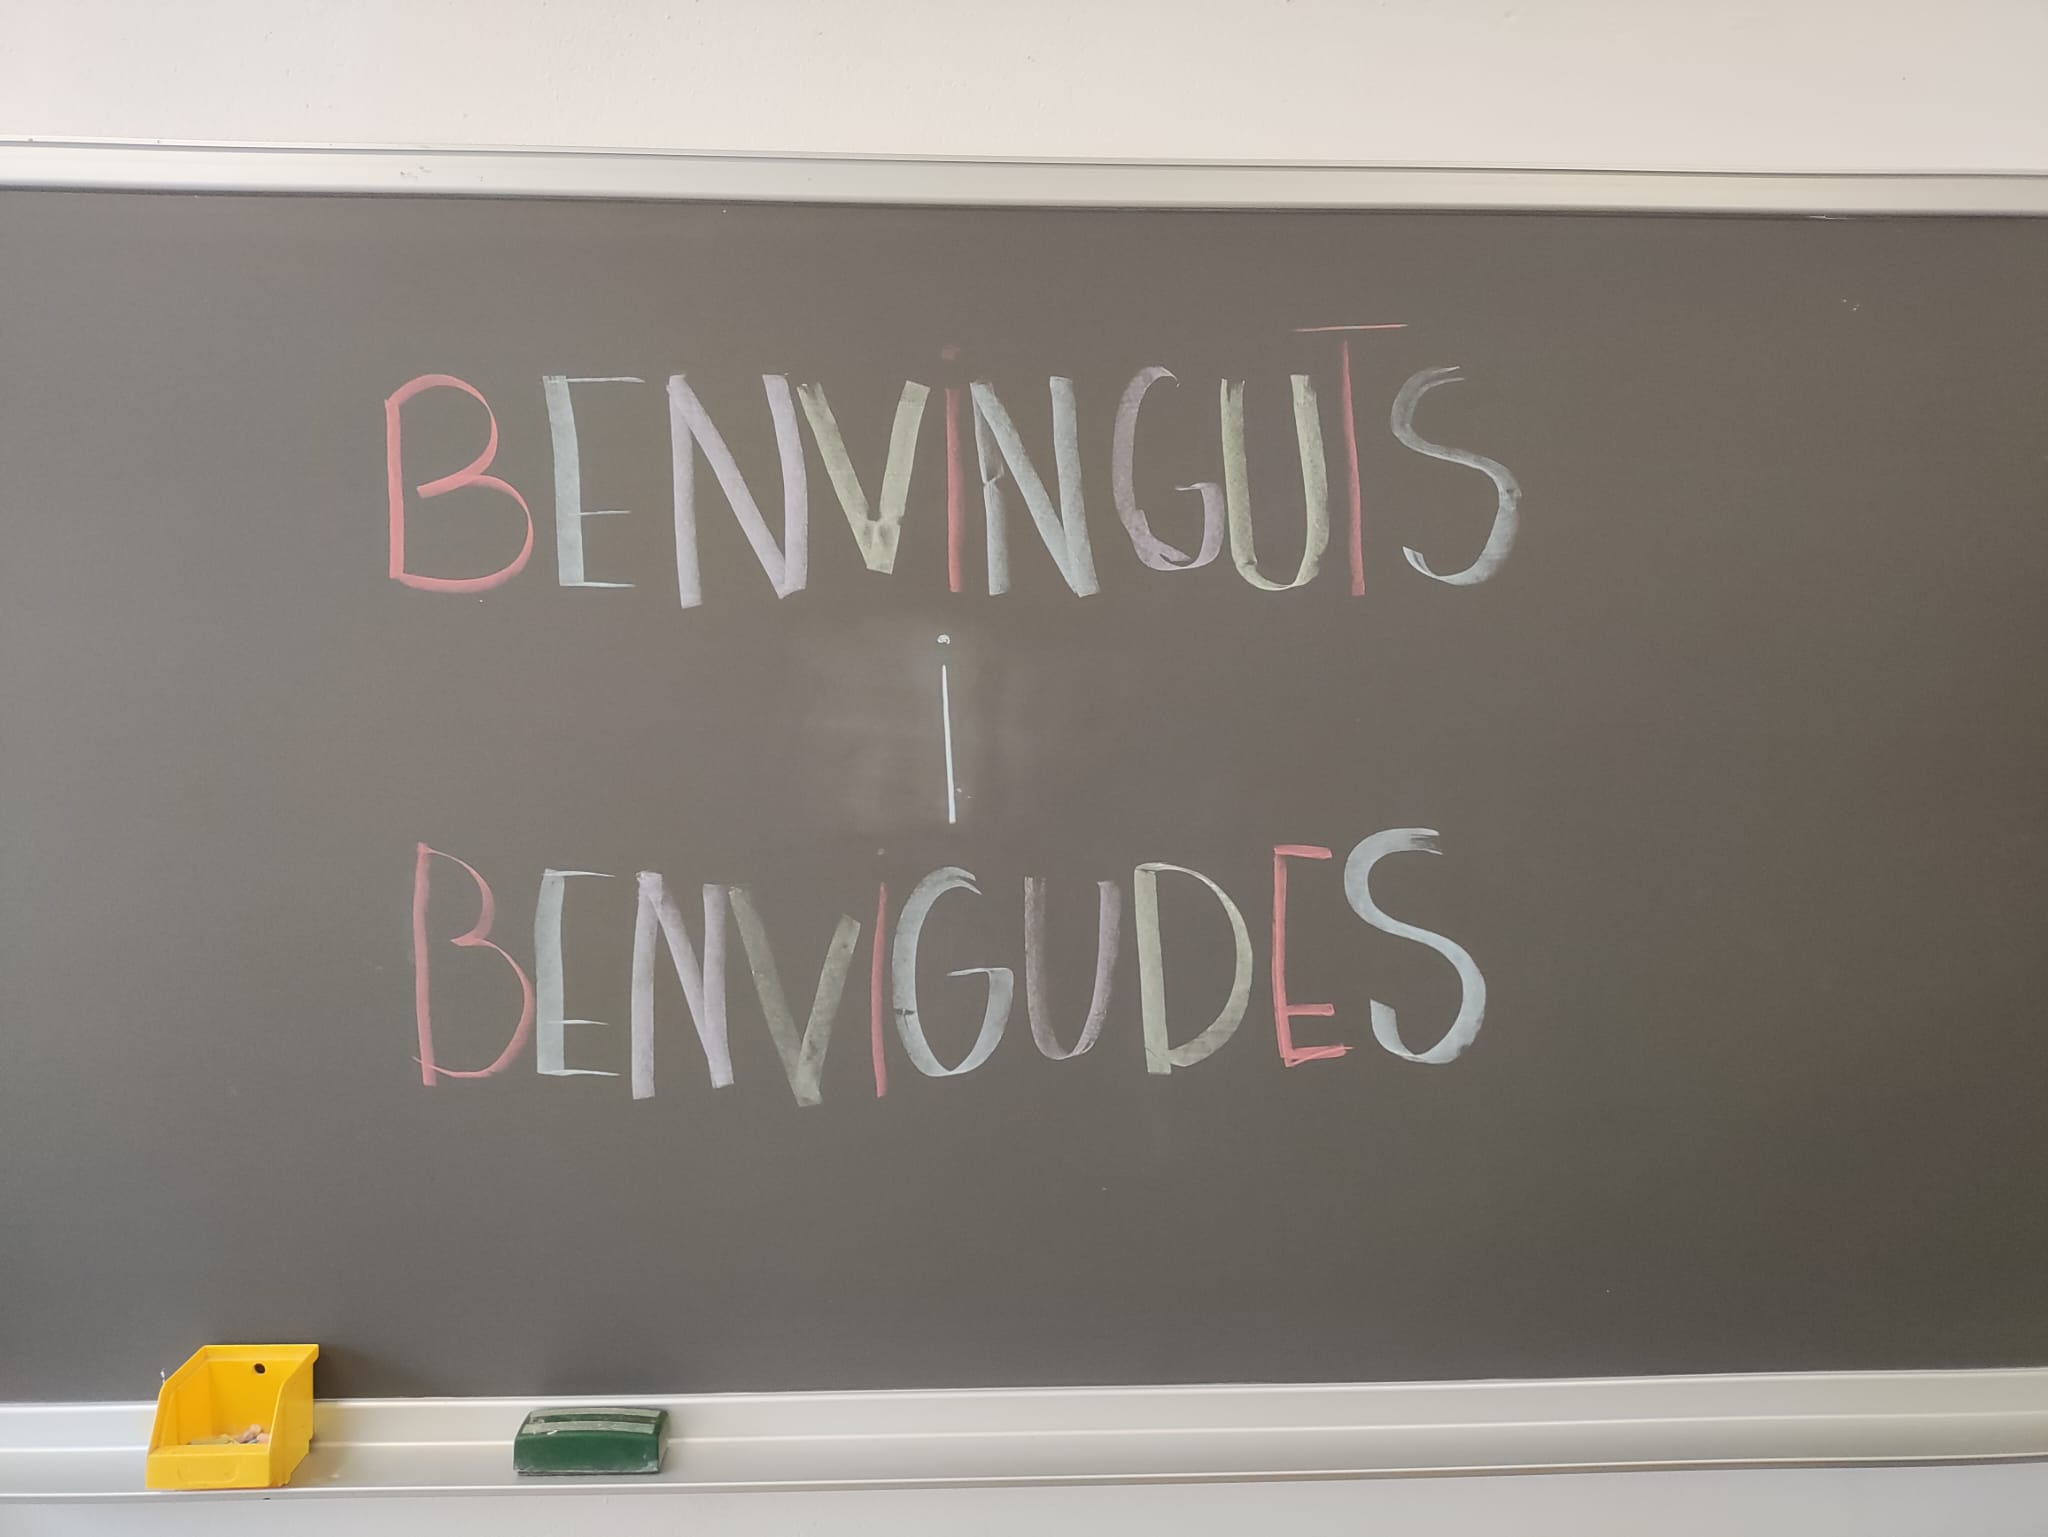 BENViNGUTS
i
BENViGUDES